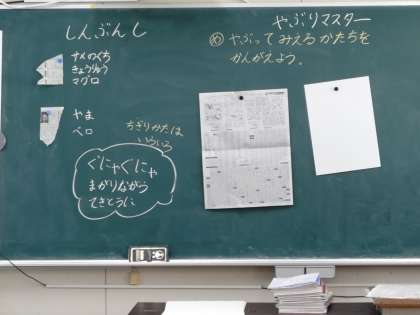 しんぶんし
サメのくち
きょうりゅう
マグロ
やま
ベロ
ちぎりかたは
いろいろ
ぐにゃぐにゃ
まがりながら
てきとうに
やぶりマスター
め やぶってみえるかたちを
かんがえよう。